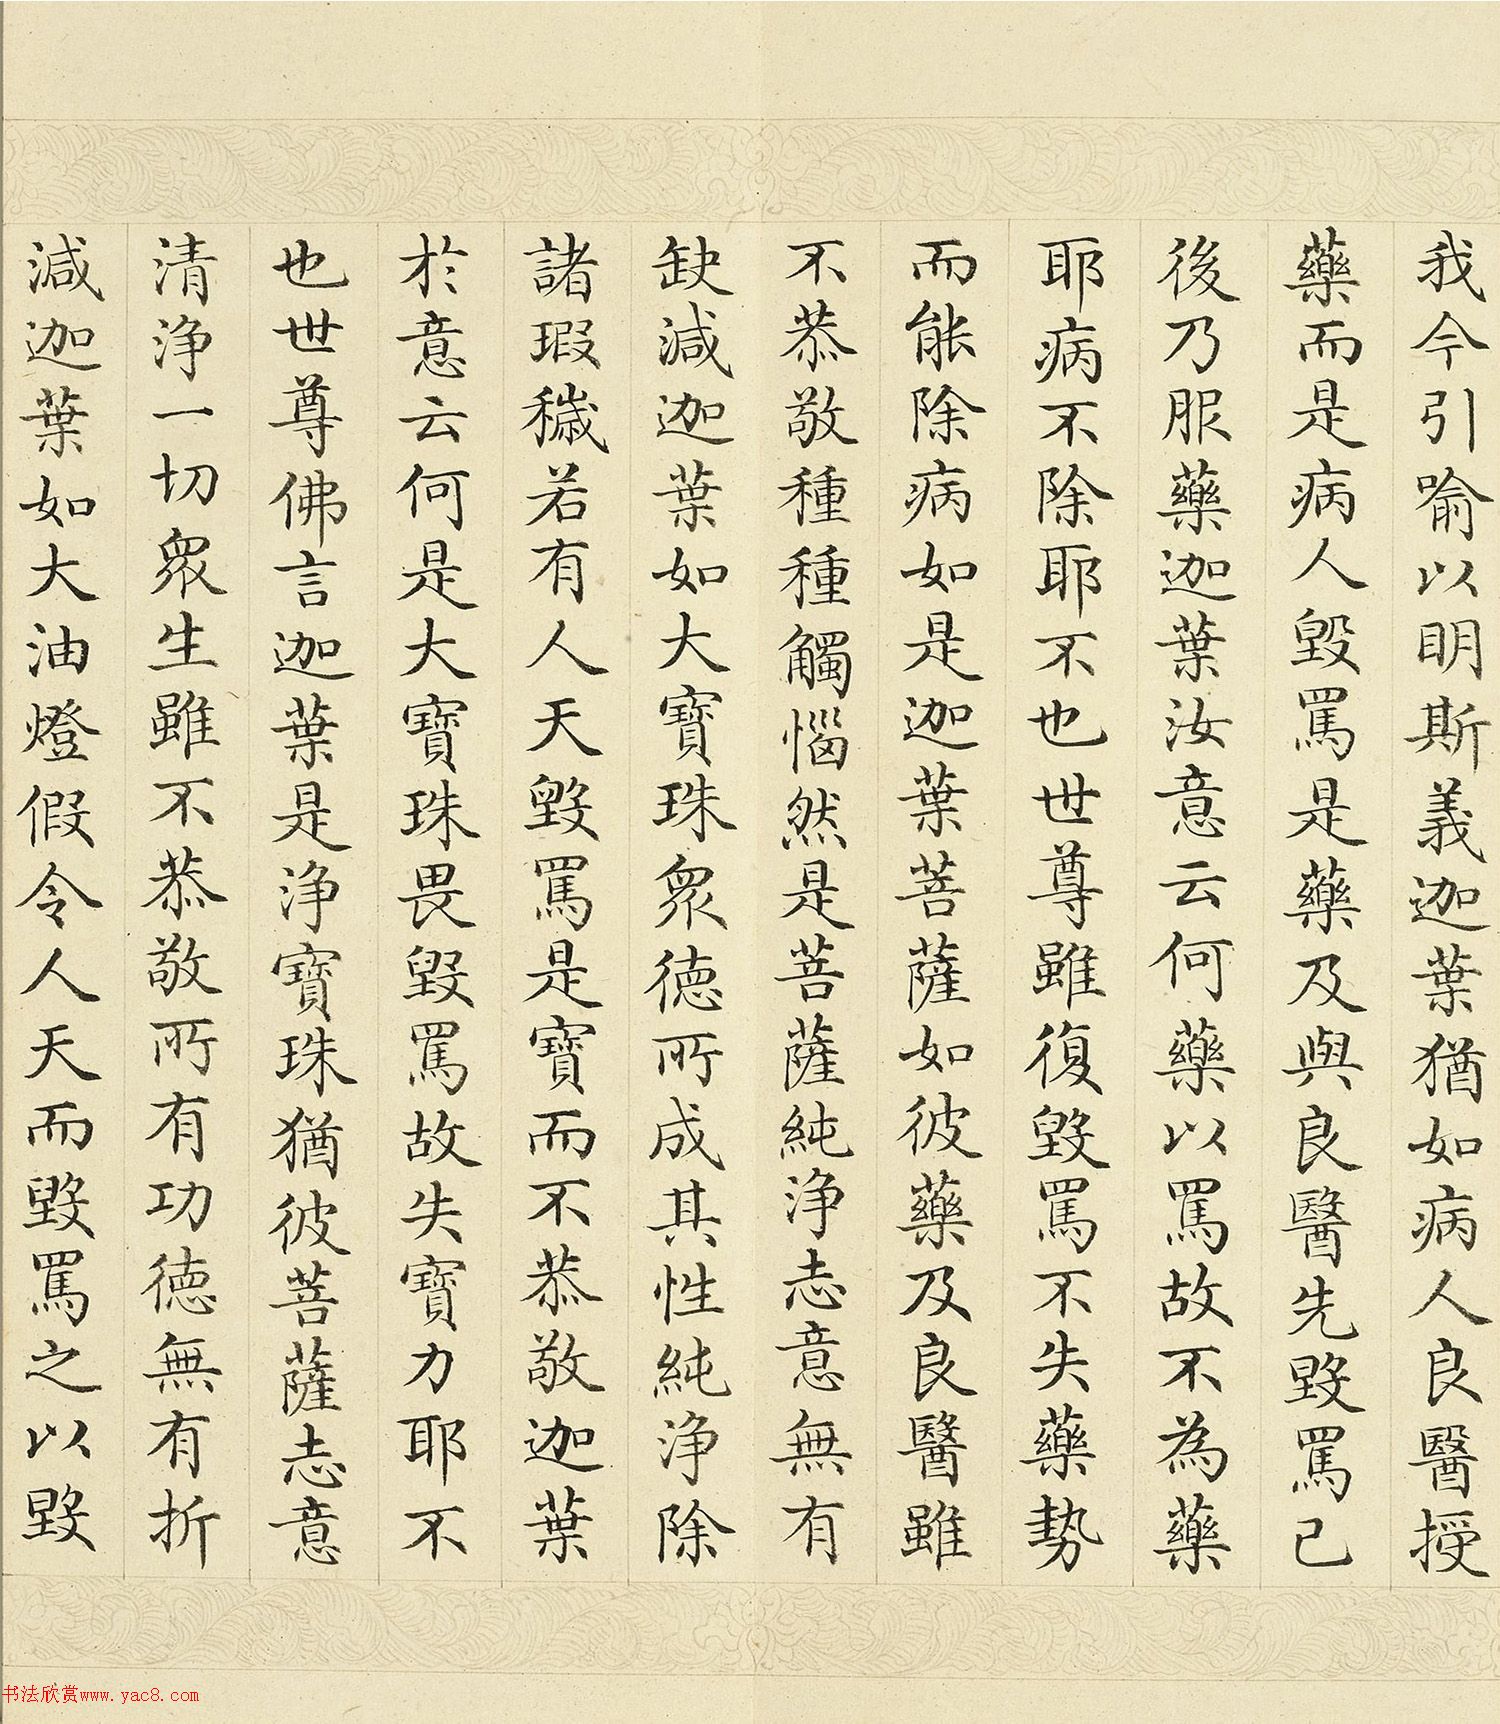 我今引喻以明斯義迦葉猶如病人良醫授
藥而是病人毀罵是藥及與良醫先毀罵已
後乃服藥迦葉汝意云何藥以罵故不為藥
耶病不除耶不也世尊雖復毀罵不失藥勢
而能除病如是迦葉菩薩如彼藥及良醫雖
不恭敬種種觸惱然是菩薩純淨志意無有
缺減迦葉如大寶珠眾德所成其性純淨除
諸瑕穢若有人天毀罵是寶而不恭敬迦葉
於意云何是大寶珠畏毀罵故失寶力耶不
也世尊佛言迦葉是淨寶珠猶彼菩薩志意
清淨一切眾生雖不恭敬所有功德無有折
減迦葉如大油燈假令人天而毀罵之以毀
书法欣赏www.yac8.com